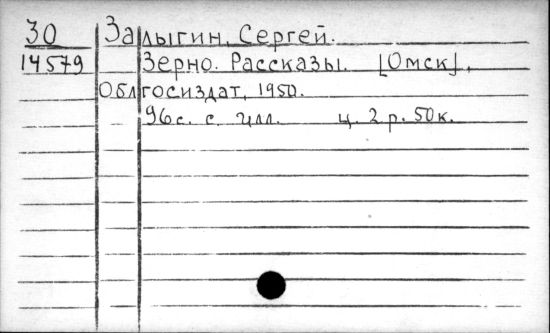 30 Залыгин, Сергей.
14579 Зерно. Рассказы. [Омск],
Облгосиздат, 1950.
96с. с илл. ц. 2 р. 50к.